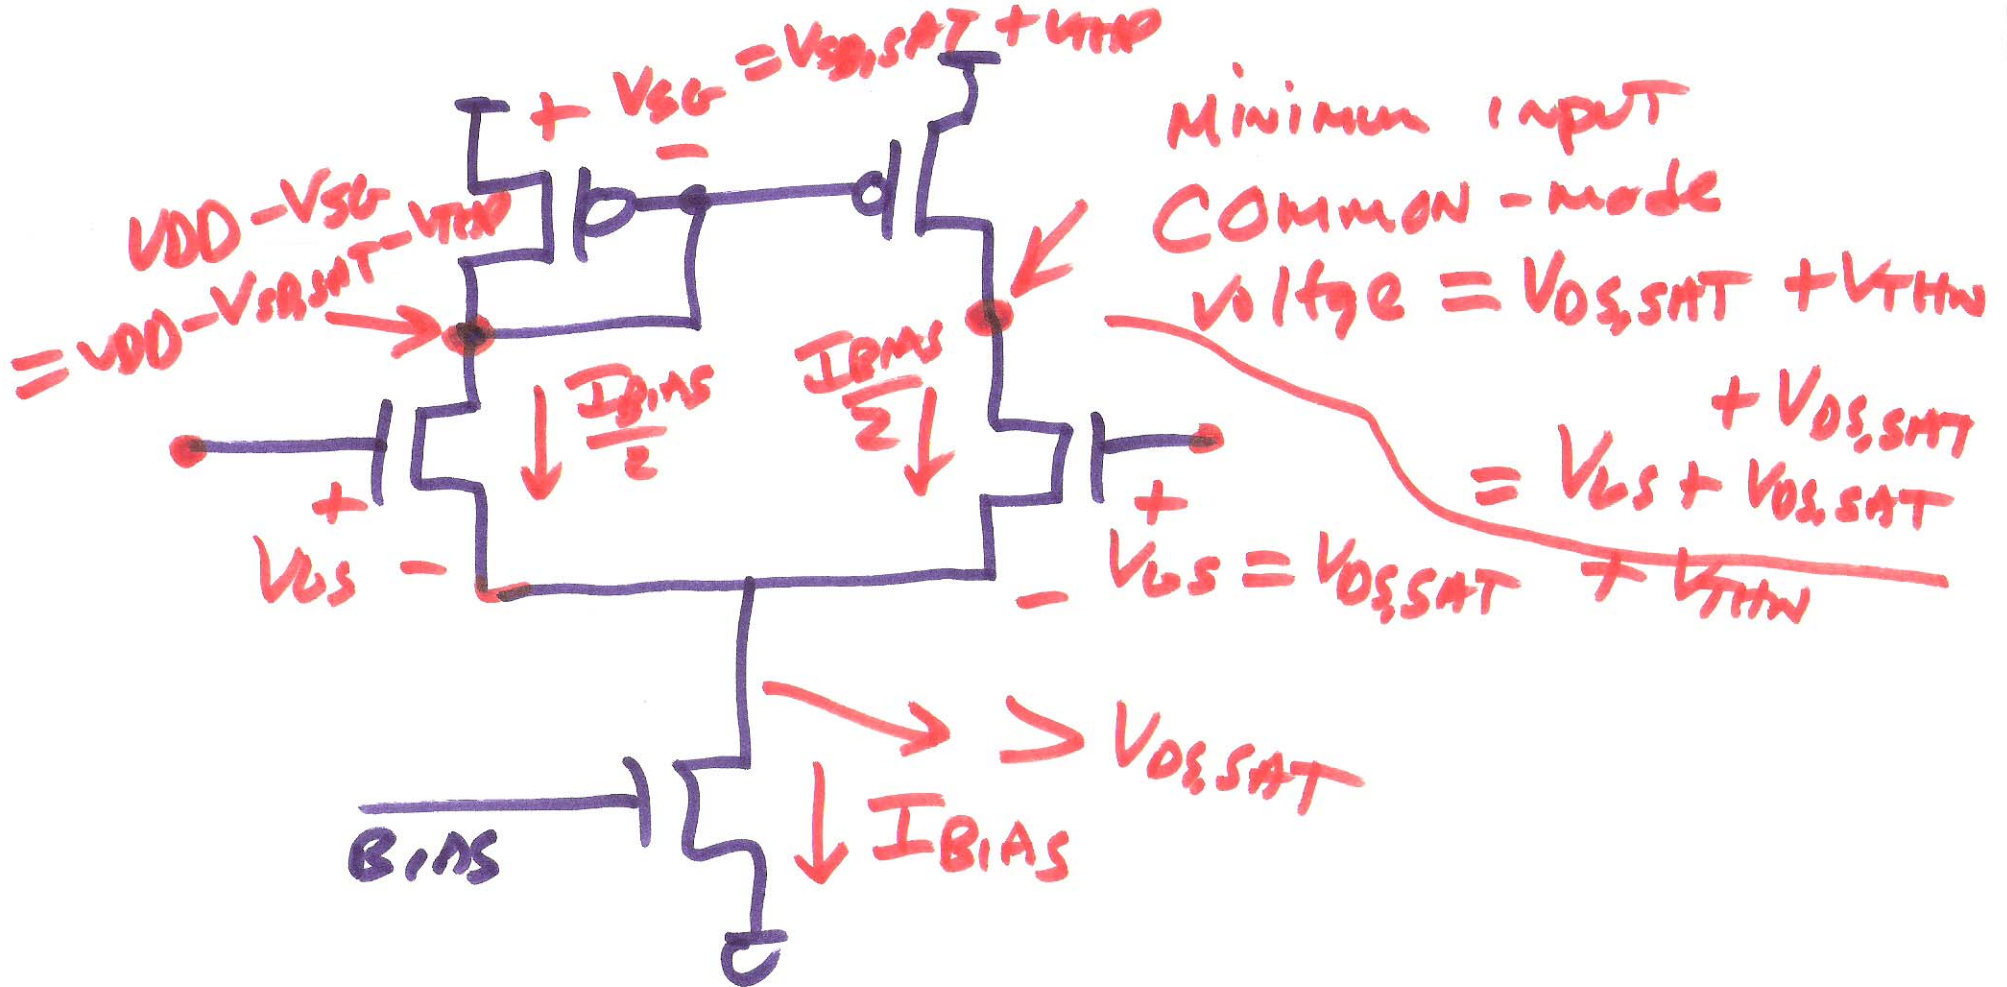 + VSG = VSD,SAT + VTHP
-
VDD - VSG
= VDD - VSD,SAT - VTHP
Minimum input
common-mode
voltage = VDS,SAT + VTHN
+ VDS,SAT
= VGS + VDS,SAT
IBIAS
2
IBIAS
2
+
VGS -
+
- VGS = VDS,SAT + VTHN
> VDS,SAT
IBIAS
BIAS